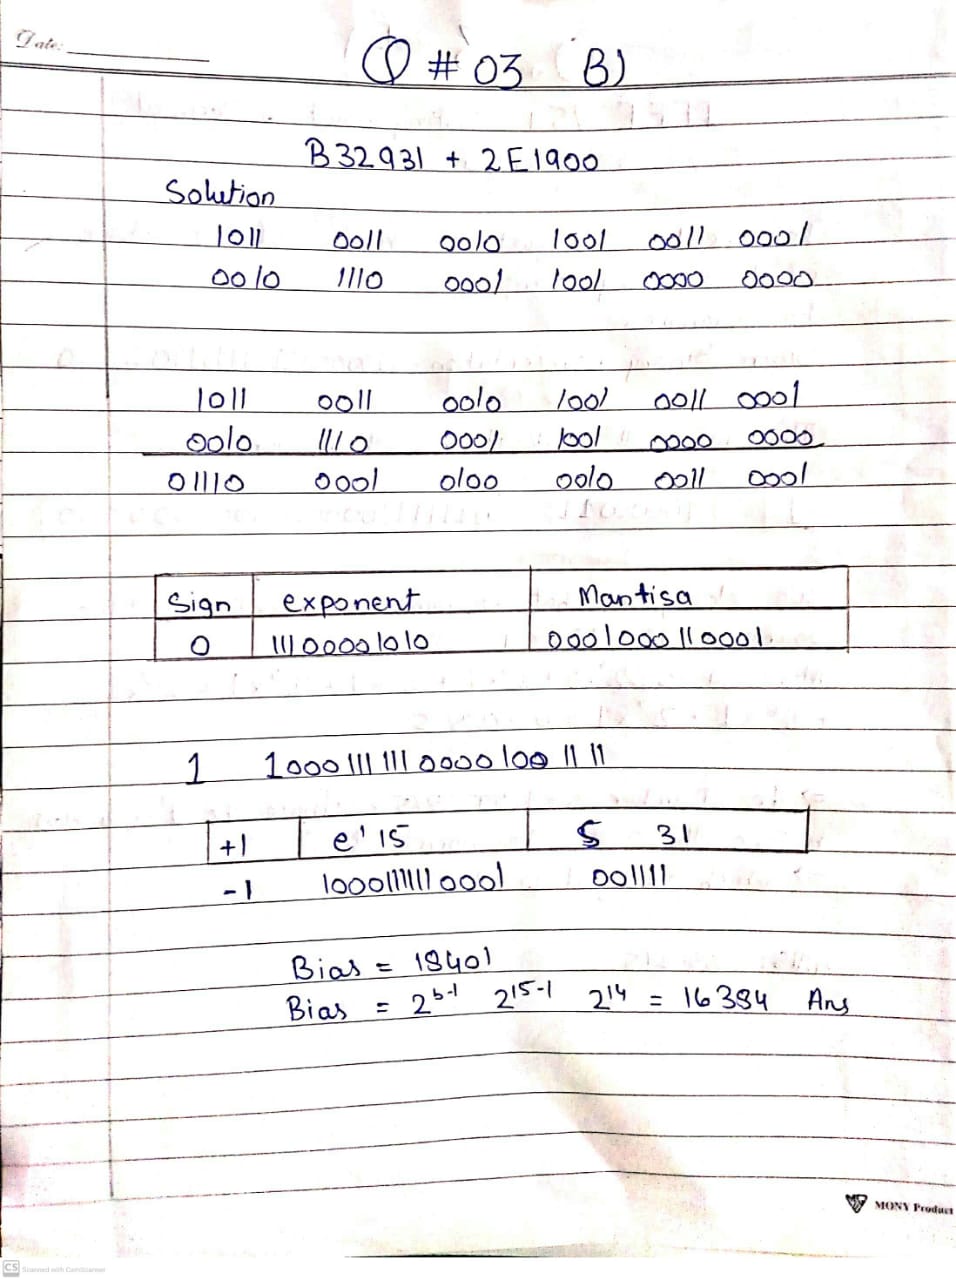 Date:
Q # 03 B)
B32931 + 2E1900
Solution
1011 0011 0010 1001 0011 0001
0010 1110 0001 1001 0000 0000
1011 0011 0010 1001 0011 0001
0010 1110 0001 1001 0000 0000
01110 0001 0100 0010 0011 0001
Sign exponent Mantisa
0 11100001010 0001000110001
1 1000111111000010011 11
+1 e' 15 S 31
-1 10001111110001 001111
Bias = 18401
Bias = 2^b-1 2^15-1 2^14 = 16384 Ans
MONY Product
CS Scanned with CamScanner